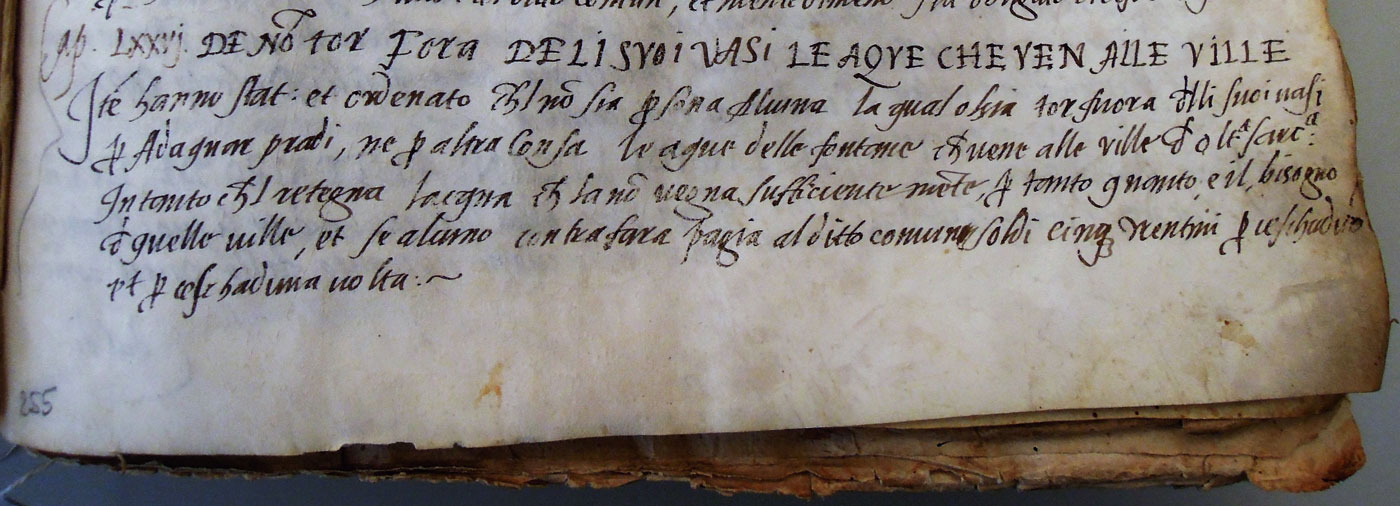 comun, et
Cap. LXXVJ. DE NŌ TOR Fora DE LI SVOI VASI LE AQVE CHE VEN ALLE VILLE
Itē hanno stat: et ordenato ch̄l nō sia ꝑsona aluna la qual osia tor fuora d̄lli suoi vasi
ꝑ Adaquar pradi, ne ꝑ altra Consa le aque delle fontane ch̄ vene alle ville d̄
In tanto ch̄l retegna lacqua ch̄ la nō vegna sufficiente mēte, ꝑ tanto quanto, e il, bisogno
d̄ quelle ville, et se aluno contrafara pagia al ditto comune soldi cinqꝫ ꝑ
et ꝑ ceschaduna uolta: ~
255